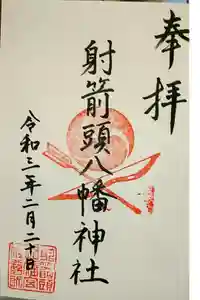 奉拝
射箭頭八幡神社
令和三年二月二十日